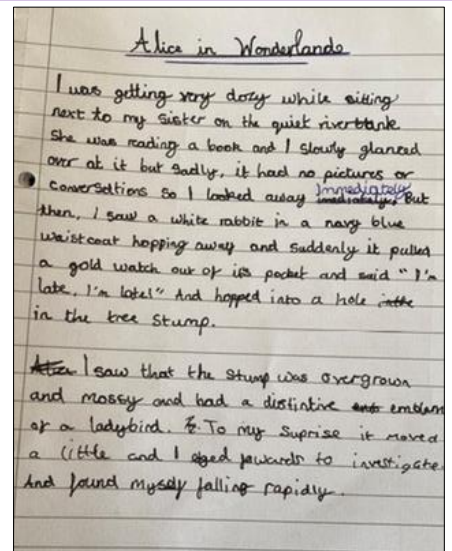 Alice in Wonderlande
I was getting very dozy while sitting
next to my sister on the quiet riverbank
She was reading a book and I slowly glanced
over at it but sadly, it had no pictures or
conversations so I looked away Immediately, But
then, I saw a white rabbit in a navy blue
waistcoat hopping away and suddenly it pulled
a gold watch out of its pocket and said "I'm
late, I'm late!" And hopped into a hole
in the tree stump.
I saw that the stump was overgrown
and mossy and had a distintive emblem
of a ladybird. To my Suprise it moved
a little and I eged fowards to investigate.
And found myself falling rapidly.